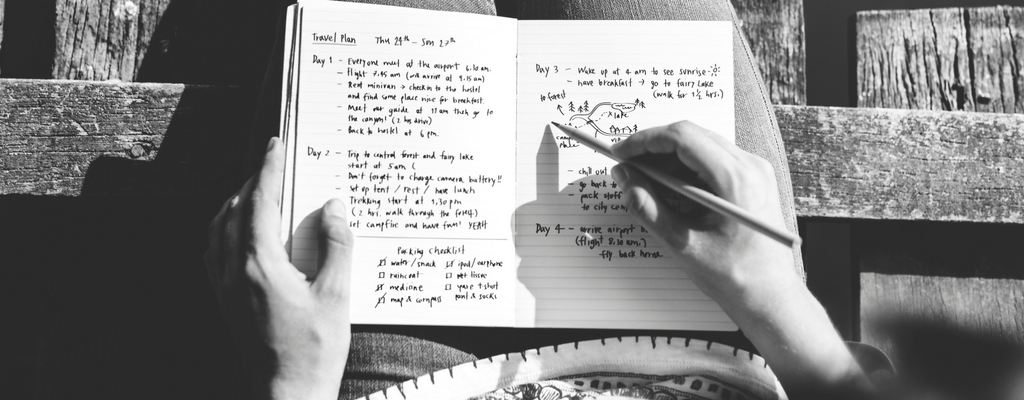 Travel Plan Thu 24th - Sun 27th
Day 1 - Everyone meet at the airport 6.10 am.
- Flight 7.45 am (will arrive at 9.15 am)
- Rent minivan → checkin to the hostel
and find some place nice for breakfast.
- Meet our guide at 11 am then go to
the canyon! (2 hrs drive)
- Back to hostel at 6 pm.
Day 2 - Trip to central forest and fairy lake
start at 5 am (
- Don't forget to change camera battery!!
- Set up tent / rest / have lunch
- Trekking start at 1.30 pm
(2 hrs. walk through the forest)
- Set campfire and have fun! YEAH
Packing Checklist
water/snack
raincoat
medicine
map & compass
ipod/earphone
wet tissue
spare t-shirt
pant & socks
Day 3 - Wake up at 4 am to see sunrise
- have breakfast → go to fairy lake
(walk for 1½ hrs.)
to forest
lake
- chill out
- go back to
- pack stuff
to city
Day 4 - arrive airport
(flight 8.30 am.)
fly back home